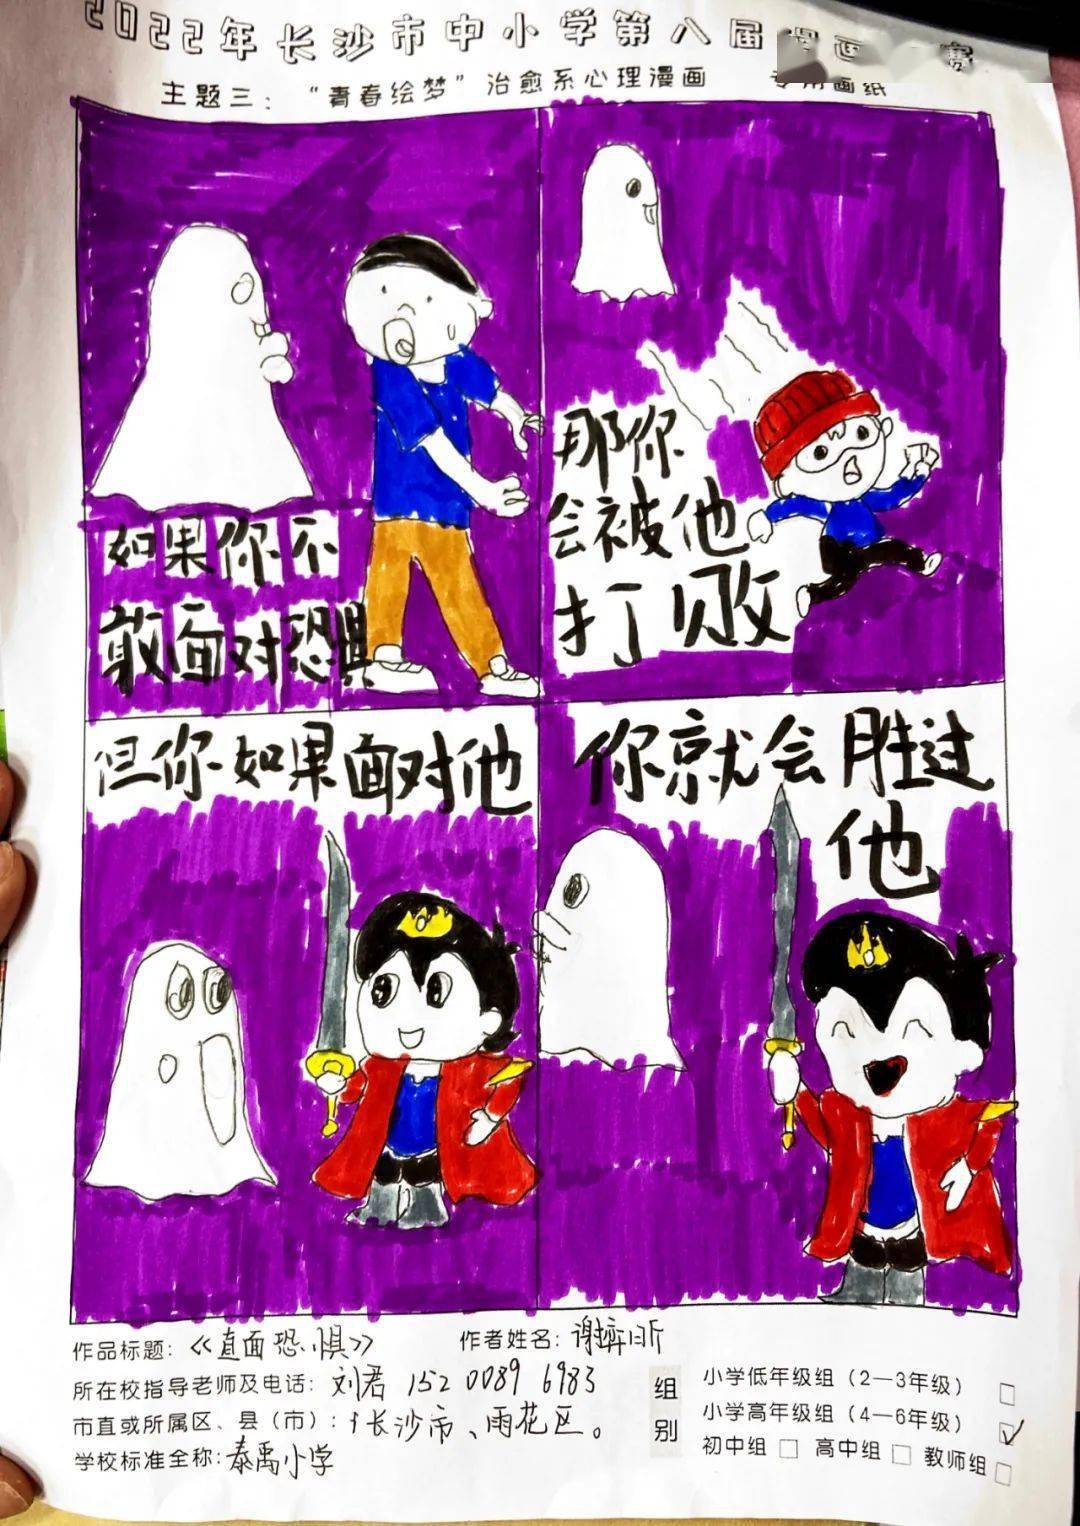 2022年长沙市中小学第八届漫画
主题三：“青春绘梦”治愈系心理漫画 专用画纸
如果你不
敢面对恐惧
那你
会被他
打败
但你如果面对他
你就会胜过
他
作品标题：《直面恐惧》 作者姓名：谢 昕
所在校指导老师及电话：刘君 152 0089 6983
市直或所属区、县（市）：长沙市、雨花区。
学校标准全称：泰禹小学
组别
小学低年级组（2—3年级）□
小学高年级组（4—6年级）☑
初中组 □ 高中组 □ 教师组 □